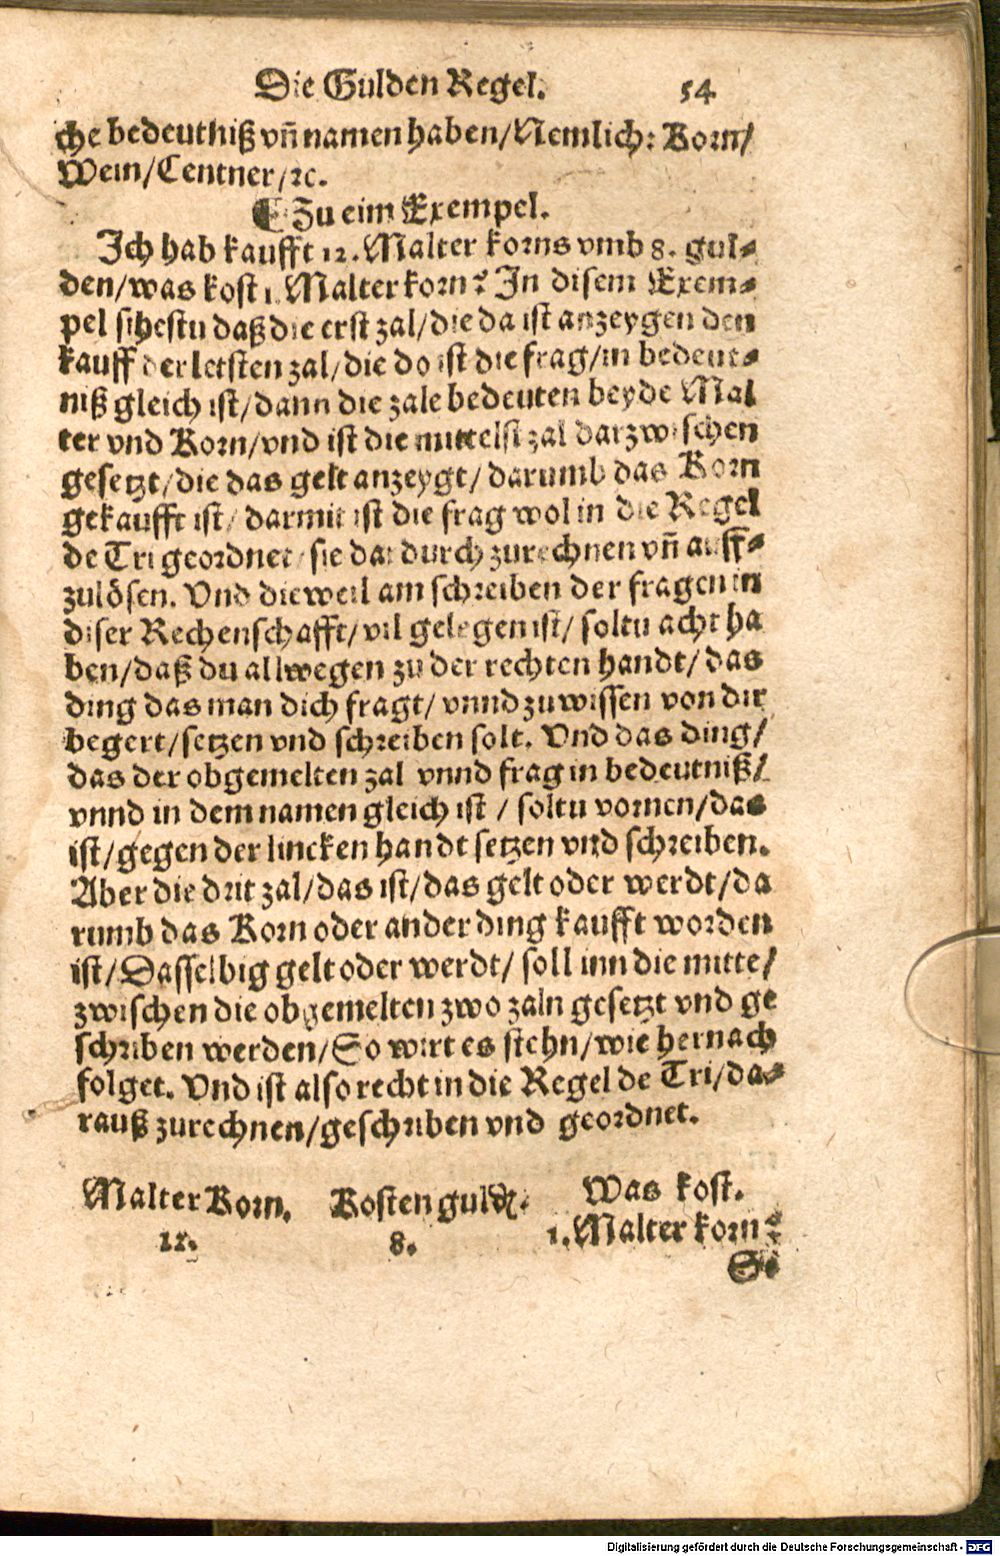 Die Gulden Regel. 54
che bedeutniß vñ namen haben/Nemlich: Korn/
Wein/Centner/ꝛc.
Zu eim Exempel.
Ich hab kaufft 12. Malter korns vmb 8. gul⸗
den/was kost 1. Malter korn? In disem Exem⸗
pel sihestu daß die erst zal/die da ist anzeygen den
kauff der letsten zal/die do ist die frag/in bedeut⸗
niß gleich ist/dann die zale bedeuten beyde Mal
ter vnd Korn/vnd ist die mittelst zal darzwischen
gesetzt/die das gelt anzeygt/darumb das Korn
gekaufft ist/darmit ist die frag wol in die Regel
de Tri geordnet/sie dardurch zurechnen vñ auff⸗
zulösen. Vnd dieweil am schreiben der fragen in
diser Rechenschafft/vil gelegen ist/soltu acht ha
ben/daß du allwegen zu der rechten handt/das
ding das man dich fragt/vnnd zuwissen von dir
begert/setzen vnd schreiben solt. Vnd das ding/
das der obgemelten zal vnnd frag in bedeutniß/
vnnd in dem namen gleich ist/soltu vornen/das
ist/gegen der lincken handt setzen vnd schreiben.
Aber die drit zal/das ist/das gelt oder werdt/da
rumb das Korn oder ander ding kaufft worden
ist/Dasselbig gelt oder werdt/soll inn die mitte/
zwischen die obgemelten zwo zaln gesetzt vnd ge
schriben werden/So wirt es stehn/wie hernach
folget. Vnd ist also recht in die Regel de Tri/da⸗
rauß zurechnen/geschriben vnd geordnet.
Malter Korn. Kosten guld. Was kost.
12. 8. 1. Malter korn?
So
Digitalisierung gefördert durch die Deutsche Forschungsgemeinschaft - DFG